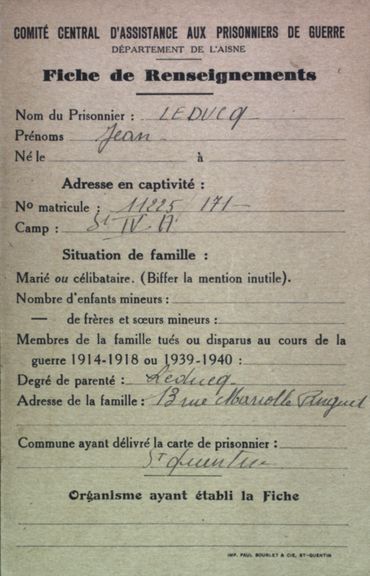 COMITÉ CENTRAL D'ASSISTANCE AUX PRISONNIERS DE GUERRE
DÉPARTEMENT DE L'AISNE
Fiche de Renseignements
Nom du Prisonnier : LEDUCQ
Prénoms Jean
Né le à
Adresse en captivité :
No matricule : 11225 / 171
Camp : St IV A
Situation de famille :
Marié ou célibataire. (Biffer la mention inutile).
Nombre d'enfants mineurs :
— de frères et sœurs mineurs :
Membres de la famille tués ou disparus au cours de la
guerre 1914-1918 ou 1939-1940 :
Degré de parenté : Leducq
Adresse de la famille : 13 rue Mariolle Pinguet
Commune ayant délivré la carte de prisonnier :
St Quentin
Organisme ayant établi la Fiche
IMP. PAUL BOURLET & CIE, ST-QUENTIN